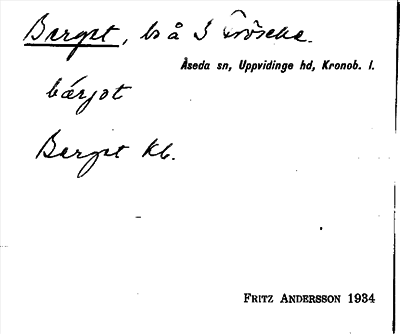 Berget, bs å 3 Fröseke.
Åseda sn, Uppvidinge hd, Kronob. l.
bárjət
Berget Kb.
FRITZ ANDERSSON 1934